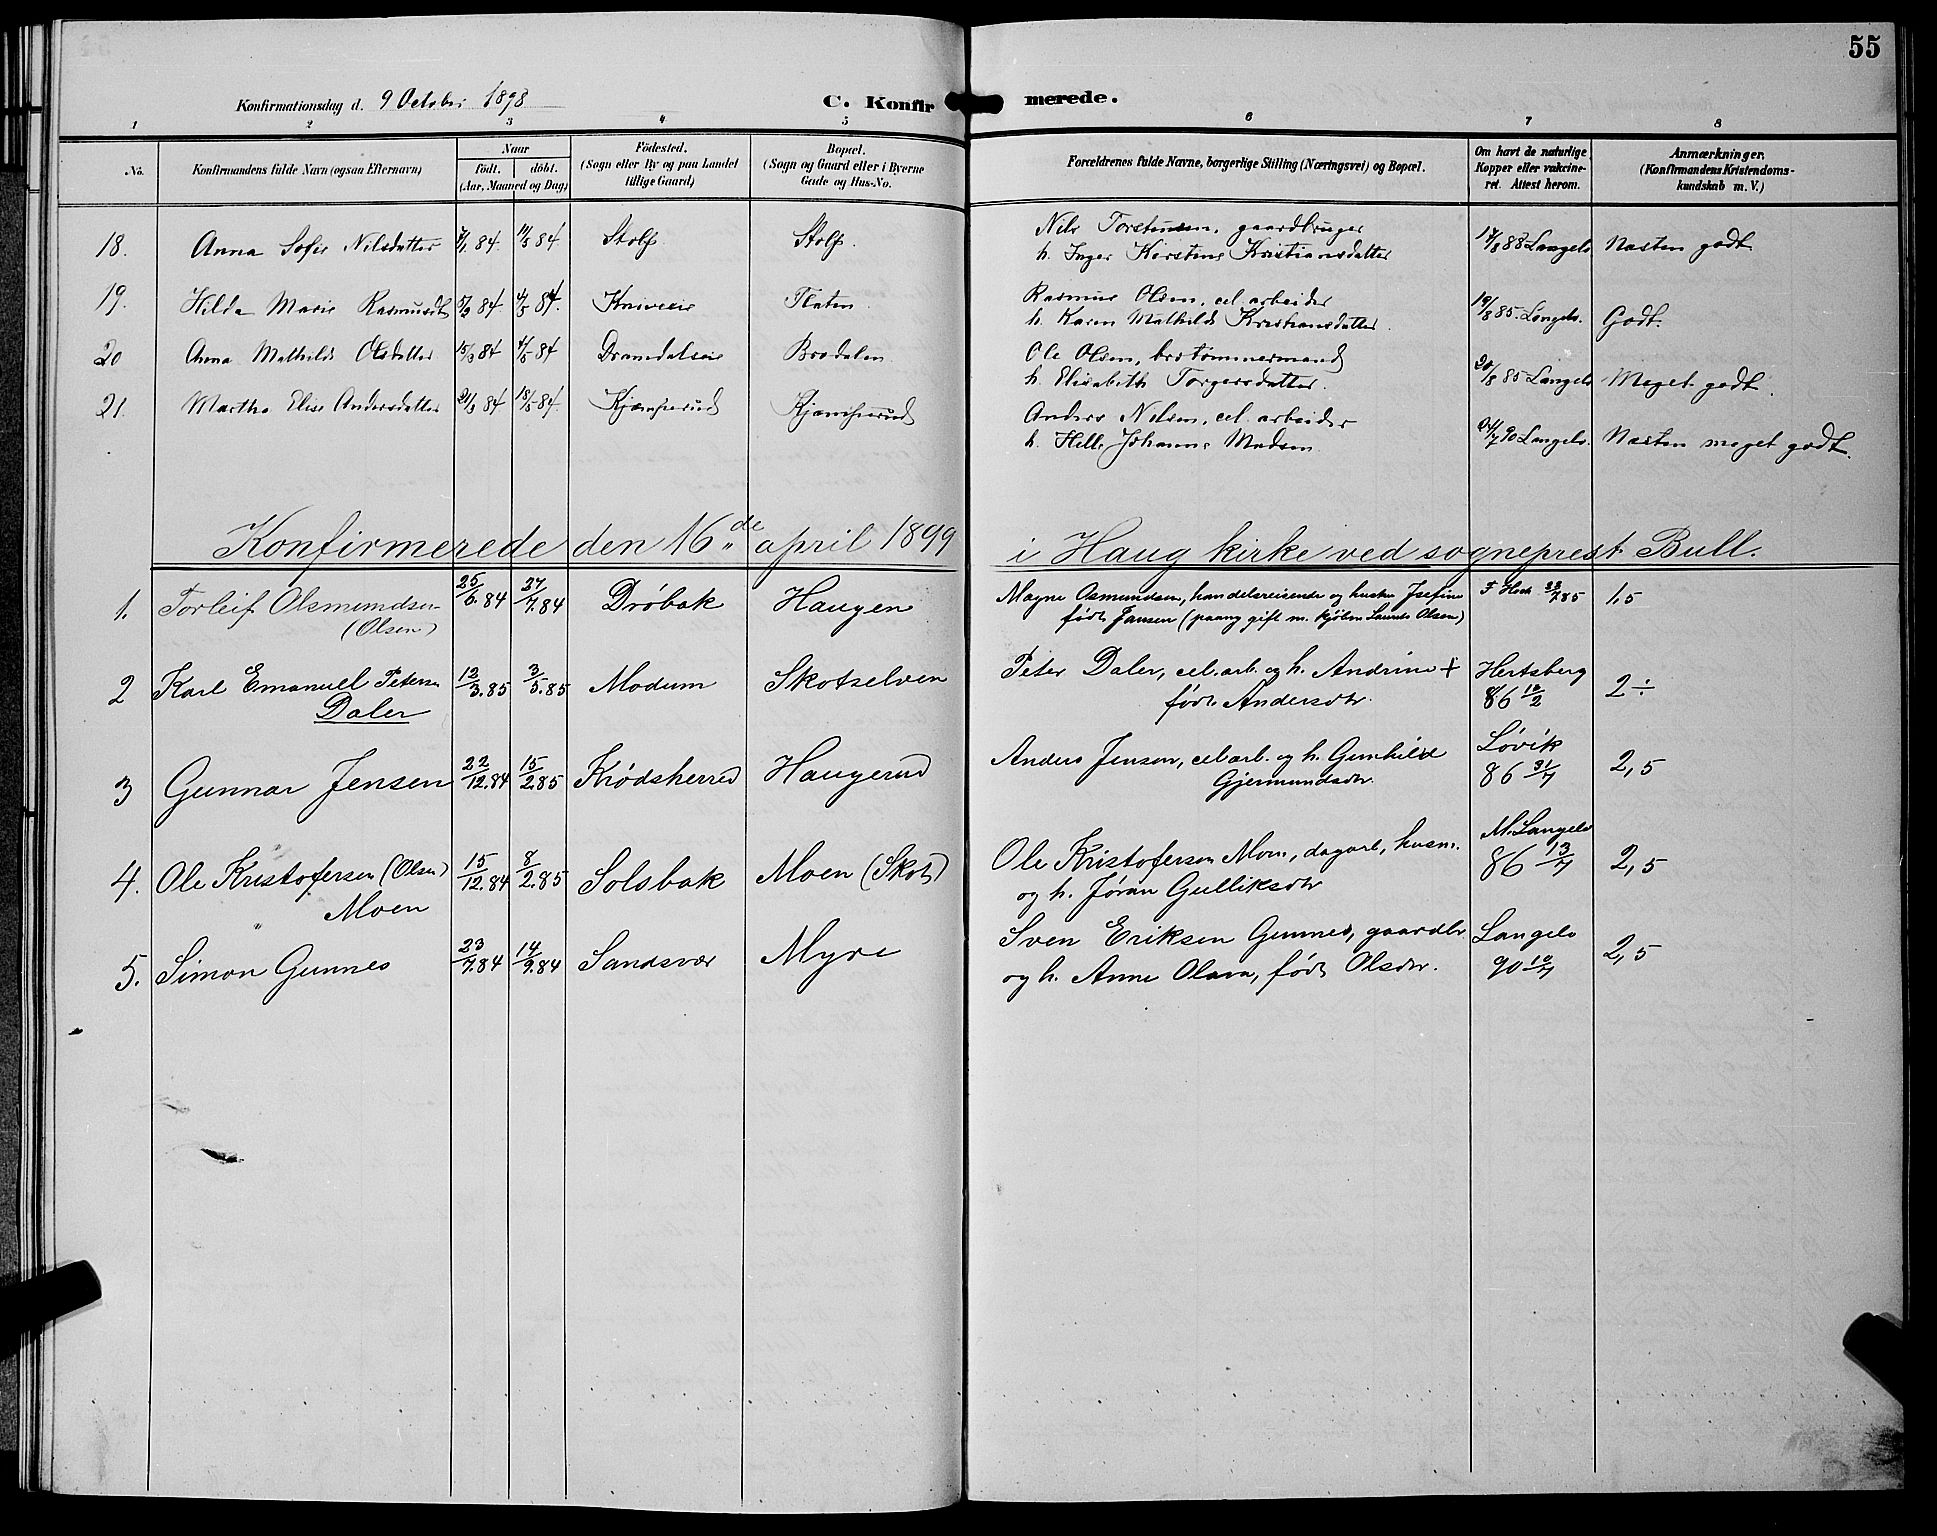 55
Konfirmationsdag d. 9 October 1898 C. Konfirmerede.
1 2 3 4 5 6 7 8
No. Konfirmandens fulde Navn (ogsaa Efternavn) Naar födt. döbt. (Aar, Maaned og Dag) Födested. (Sogn eller By og paa Landet tillige Gaard) Bopæl. (Sogn og Gaard eller i Byerne Gade og Hus-No. Forældrenes fulde Navne, borgerlige Stilling (Næringsvei) og Bopæl. Om havt de naturlige Kopper eller vakcineret. Attest herom. Anmærkninger. (Konfirmandens Kristendomskundskab m. V.)
18. Anna Sofie Nilsdatter 7/1 84. 11/5 84 Stolp. Stolp. Nils Torstensen, gaardbruger 17/8 88 Langelv. Næsten godt
h. Inger Kirstine Kristiansdatter
19. Hilda Marie Rasmusdt 5/2 84. 4/5 84. Kniveeie Flaten Rasmus Olsen, cel. arbeider 19/8 85. Langelv. Godt.
h. Karen Mathilde Kristiansdatter.
20 Anna Mathilde Olsdatter 15/3 84 4/5 84 Bradalen Ole Olsen, brotømmermand 20/8 85 Langelv Meget godt.
h. Elisabeth Torgersdatter.
21. Martha Elise Andersdatter 21/3 84 18/5 84. Kjæmperud Kjæmperud Anders Nilsen, cel. arbeider 90 Langelv. Næsten meget godt.
h. Helle Johanne Madsen
Konfirmerede den 16de april 1899 i Haug kirke ved sogneprest Bull.
1. Torleif Olsmundsen 25/6.84 27/7.84 Drøbak Haugen Magne Asmundsen, handelsreisende og hustru Josefine F Hock 23/7.85 1,5
(Olsen) født Jansen (paany gift m. kjøbm Laurits Olsen)
2 Karl Emanuel Petersen 12/3.85 3/5.85 Modum Skotselven Peter Daler, cel.arb. og h. Andrine + Hertsberg 2÷
Daler født Andersdtr. 86 10/2
3 Gunnar Jensen 22/12.84 15/2.85 Krødsherred Haugerud Anders Jensen, cel.arb. og h. Gunhild Løvik 2,5
Gjermundsdtr. 86 31/7
4. Ole Kristofersen (Olsen) 15/12.84 8/2.85 Solsbak Moen (Skots) Ole Kristofersen Moen, dagarb, husm. M. Langelv 2,5
Moen og h. Jøran Gulliksdtr 86 13/7
5. Simon Gunnes 23/7.84 14/9.84 Sandsvær Myre Sven Eriksen Gunnes, gaardbr. Langelv 2,5
og h. Anne Olava, født Olsdtr. 90 10/7